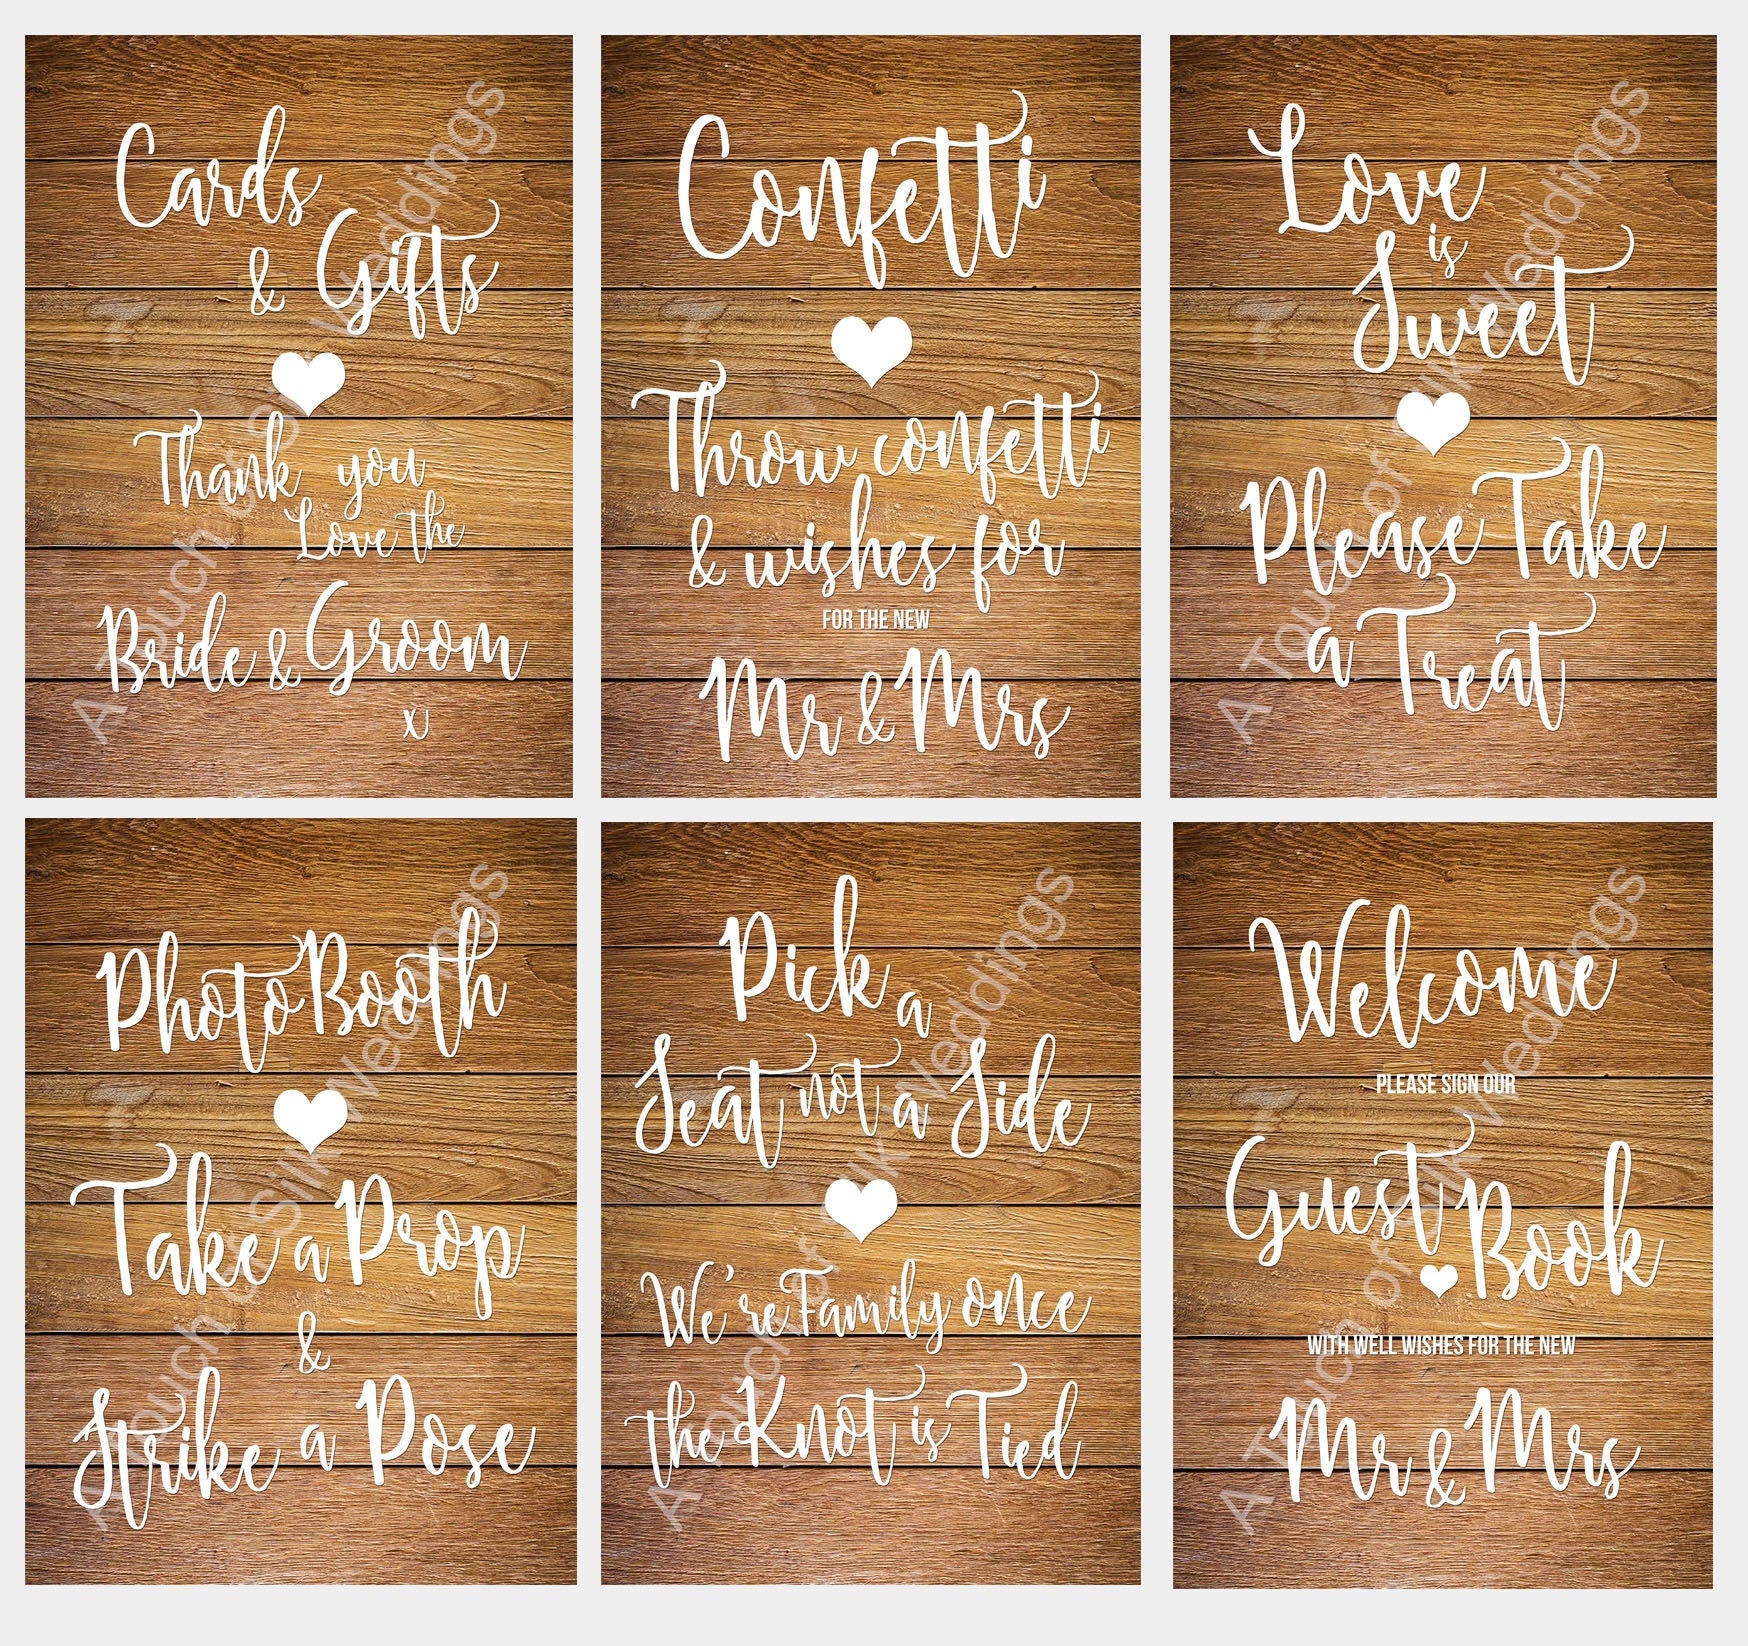 Cards
& Gifts
Thank you
Love the
Bride & Groom
x
A Touch of Silk Weddings
Confetti
Throw confetti
& wishes for
FOR THE NEW
Mr & Mrs
Love
is
Sweet
Please Take
a Treat
A Touch of Silk Weddings
Photo Booth
Take a Prop
&
Strike a Pose
A Touch of Silk Weddings
Pick a
Seat not a Side
We're Family once
the Knot is Tied
A Touch of Silk Weddings
Welcome
PLEASE SIGN OUR
Guest Book
WITH WELL WISHES FOR THE NEW
Mr & Mrs
A Touch of Silk Weddings